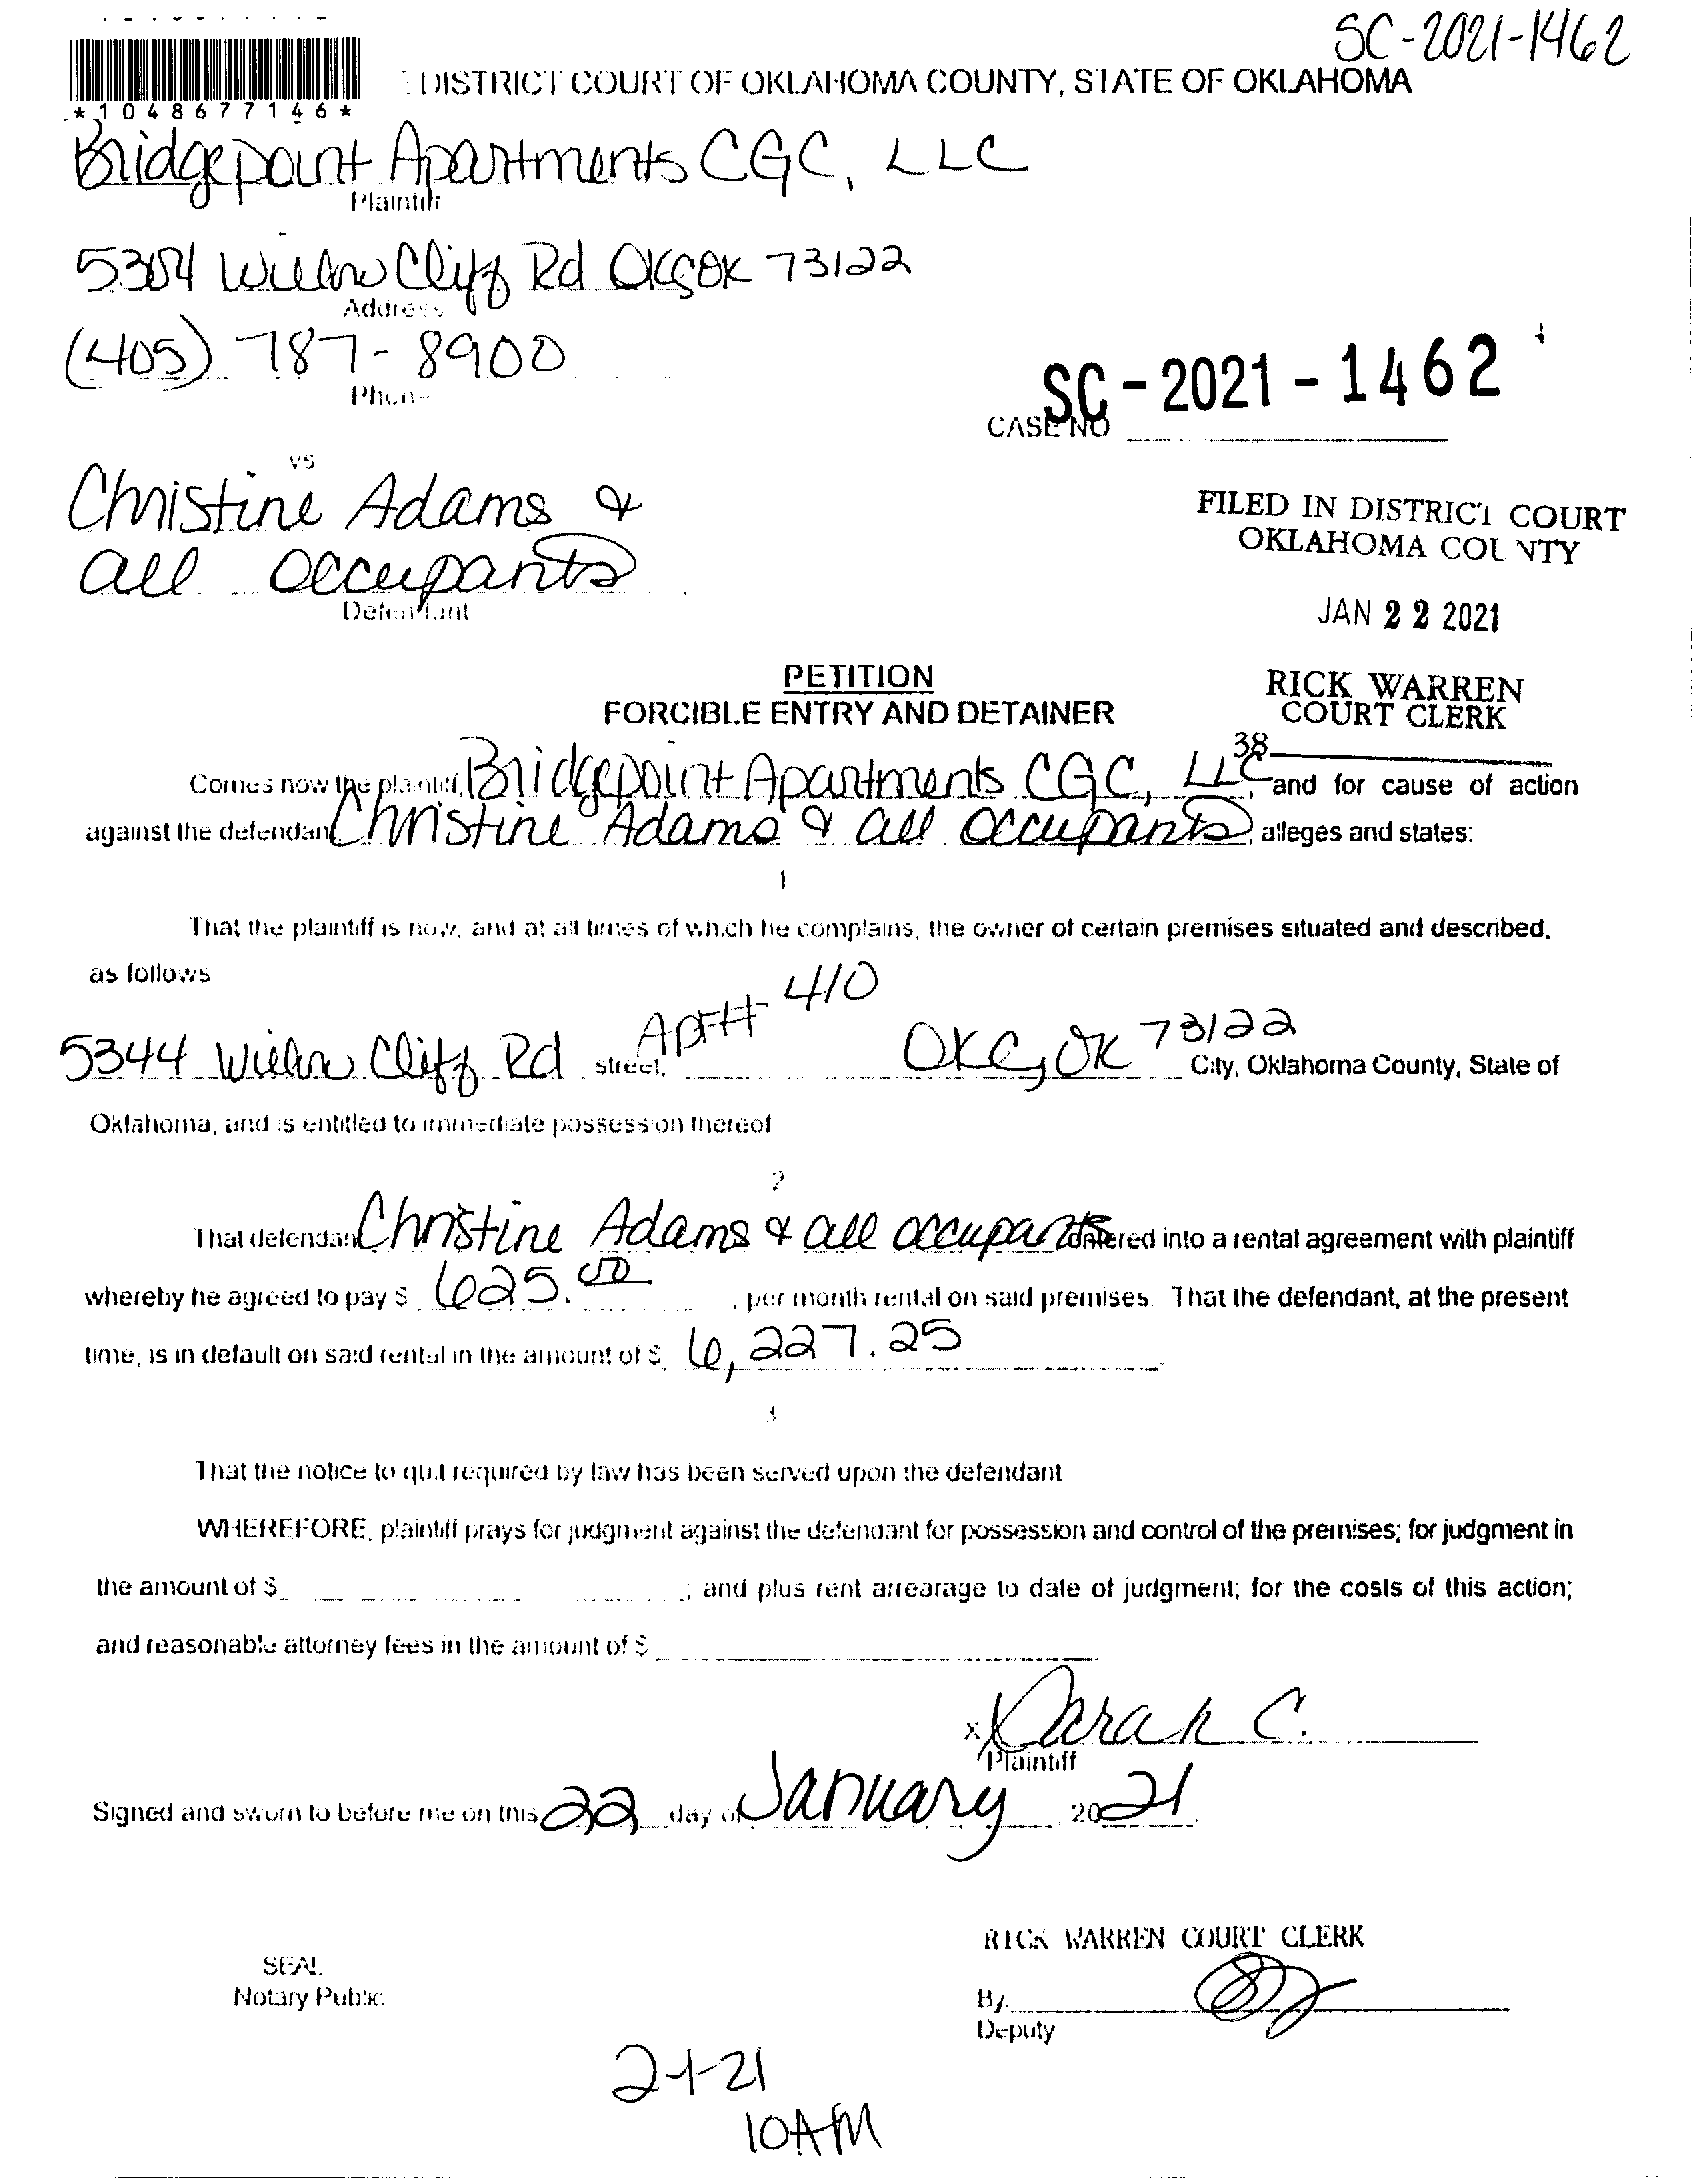 SC-2021-1462
DISTRICT COURT OF OKLAHOMA COUNTY, STATE OF OKLAHOMA
*1048677146*
Bridgepoint Apartments CGC, LLC
Plaintiff
5304 Willow Cliff Rd OKC OK 73122
Address
(405) 787-8900
Phone
SC-2021-1462
CASE NO
vs
Christine Adams &
all occupants
Defendant
FILED IN DISTRICT COURT
OKLAHOMA COUNTY
JAN 22 2021
RICK WARREN
COURT CLERK
38
PETITION
FORCIBLE ENTRY AND DETAINER
Comes now the plaintiff, Bridgepoint Apartments CGC, LLC, and for cause of action
against the defendant Christine Adams & all occupants, alleges and states:
1
That the plaintiff is now, and at all times of which he complains, the owner of certain premises situated and described,
as follows
5344 Willow Cliff Rd street, Apt# 410 OKC, OK 73122 City, Oklahoma County, State of
Oklahoma, and is entitled to immediate possession thereof
2
That defendant Christine Adams & all occupants entered into a rental agreement with plaintiff
whereby he agreed to pay $ 625.00, per month rental on said premises. That the defendant, at the present
time, is in default on said rental in the amount of $ 6,227.25
3
That the notice to quit required by law has been served upon the defendant
WHEREFORE, plaintiff prays for judgment against the defendant for possession and control of the premises; for judgment in
the amount of $ ; and plus rent arrearage to date of judgment; for the costs of this action;
and reasonable attorney fees in the amount of $
x Sarah C.
Plaintiff
Signed and sworn to before me on this 22 day of January 2021
RICK WARREN COURT CLERK
SEAL
Notary Public
By
Deputy
2-1-21
10AM